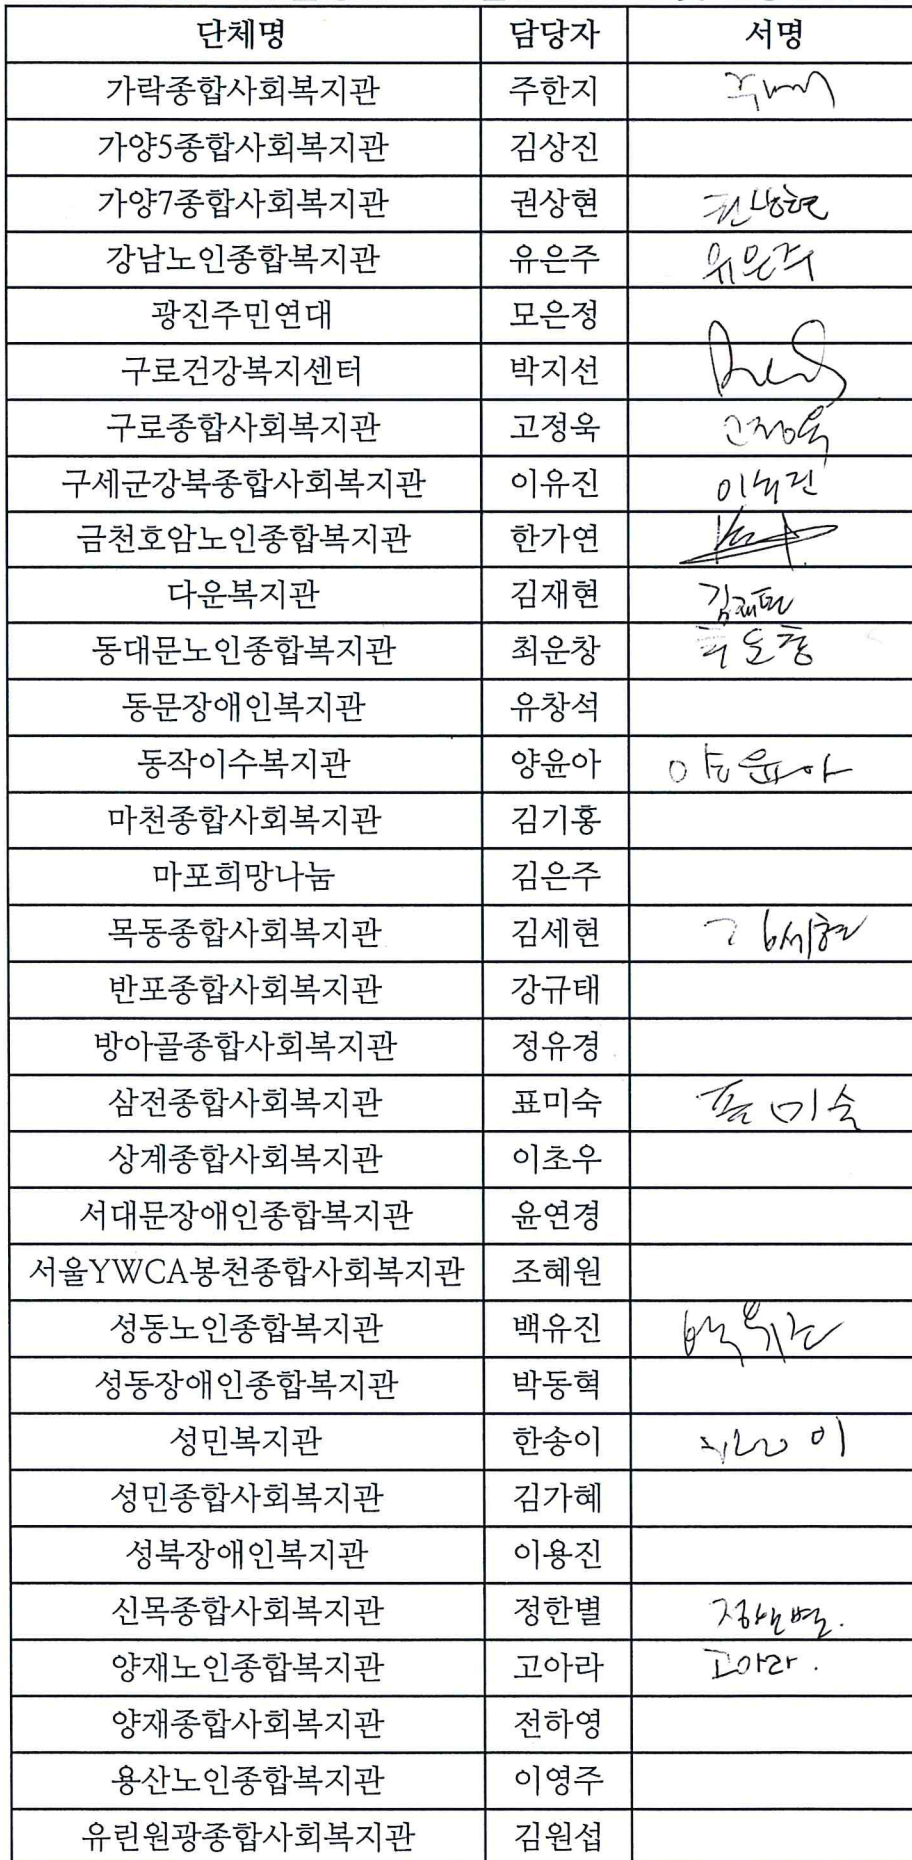 단체명 담당자 서명
가락종합사회복지관 주한지
가양5종합사회복지관 김상진
가양7종합사회복지관 권상현 권상현
강남노인종합복지관 유은주 유은주
광진주민연대 모은정
구로건강복지센터 박지선
구로종합사회복지관 고정욱 고정욱
구세군강북종합사회복지관 이유진 이유진
금천호암노인종합복지관 한가연
다운복지관 김재현 김재현
동대문노인종합복지관 최운창
동문장애인복지관 유창석
동작이수복지관 양윤아 양윤아
마천종합사회복지관 김기홍
마포희망나눔 김은주
목동종합사회복지관 김세현 김세현
반포종합사회복지관 강규태
방아골종합사회복지관 정유경
삼전종합사회복지관 표미숙 표미숙
상계종합사회복지관 이초우
서대문장애인종합복지관 윤연경
서울YWCA봉천종합사회복지관 조혜원
성동노인종합복지관 백유진 백유진
성동장애인종합복지관 박동혁
성민복지관 한송이
성민종합사회복지관 김가혜
성북장애인복지관 이용진
신목종합사회복지관 정한별 정한별.
양재노인종합복지관 고아라 고아라.
양재종합사회복지관 전하영
용산노인종합복지관 이영주
유린원광종합사회복지관 김원섭